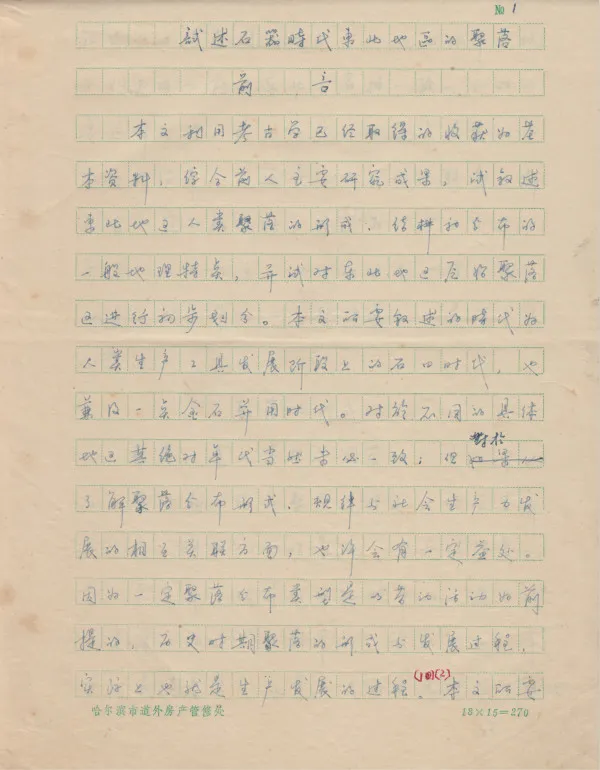 № 1
试述石器時代東北地区的聚落
前 言
本文利用考古学已经取得的收获为基
本资料，综合前人主要研究成果，试叙述
東北地区人类聚落的形成、结构和分布的
一般地理特点，并试对东北地区原始聚落
区进行初步划分。本文所要叙述的時代为
人类生产工具发展阶段上的石四时代，也
兼及一点金石并用时代。对於不同的具体
地区其绝对年代当然未必一致；但對於
了解聚落分布形式、规律与社会生产力发
展的相互关联方面，也许会有一定益处。
因为一定聚落分布类型是以劳动活动为前
提的，历史时期聚落的形成与发展过程，
实际上也就是生产发展的过程(1)(2)，本文所要
哈尔滨市道外房产管修处 18×15=270